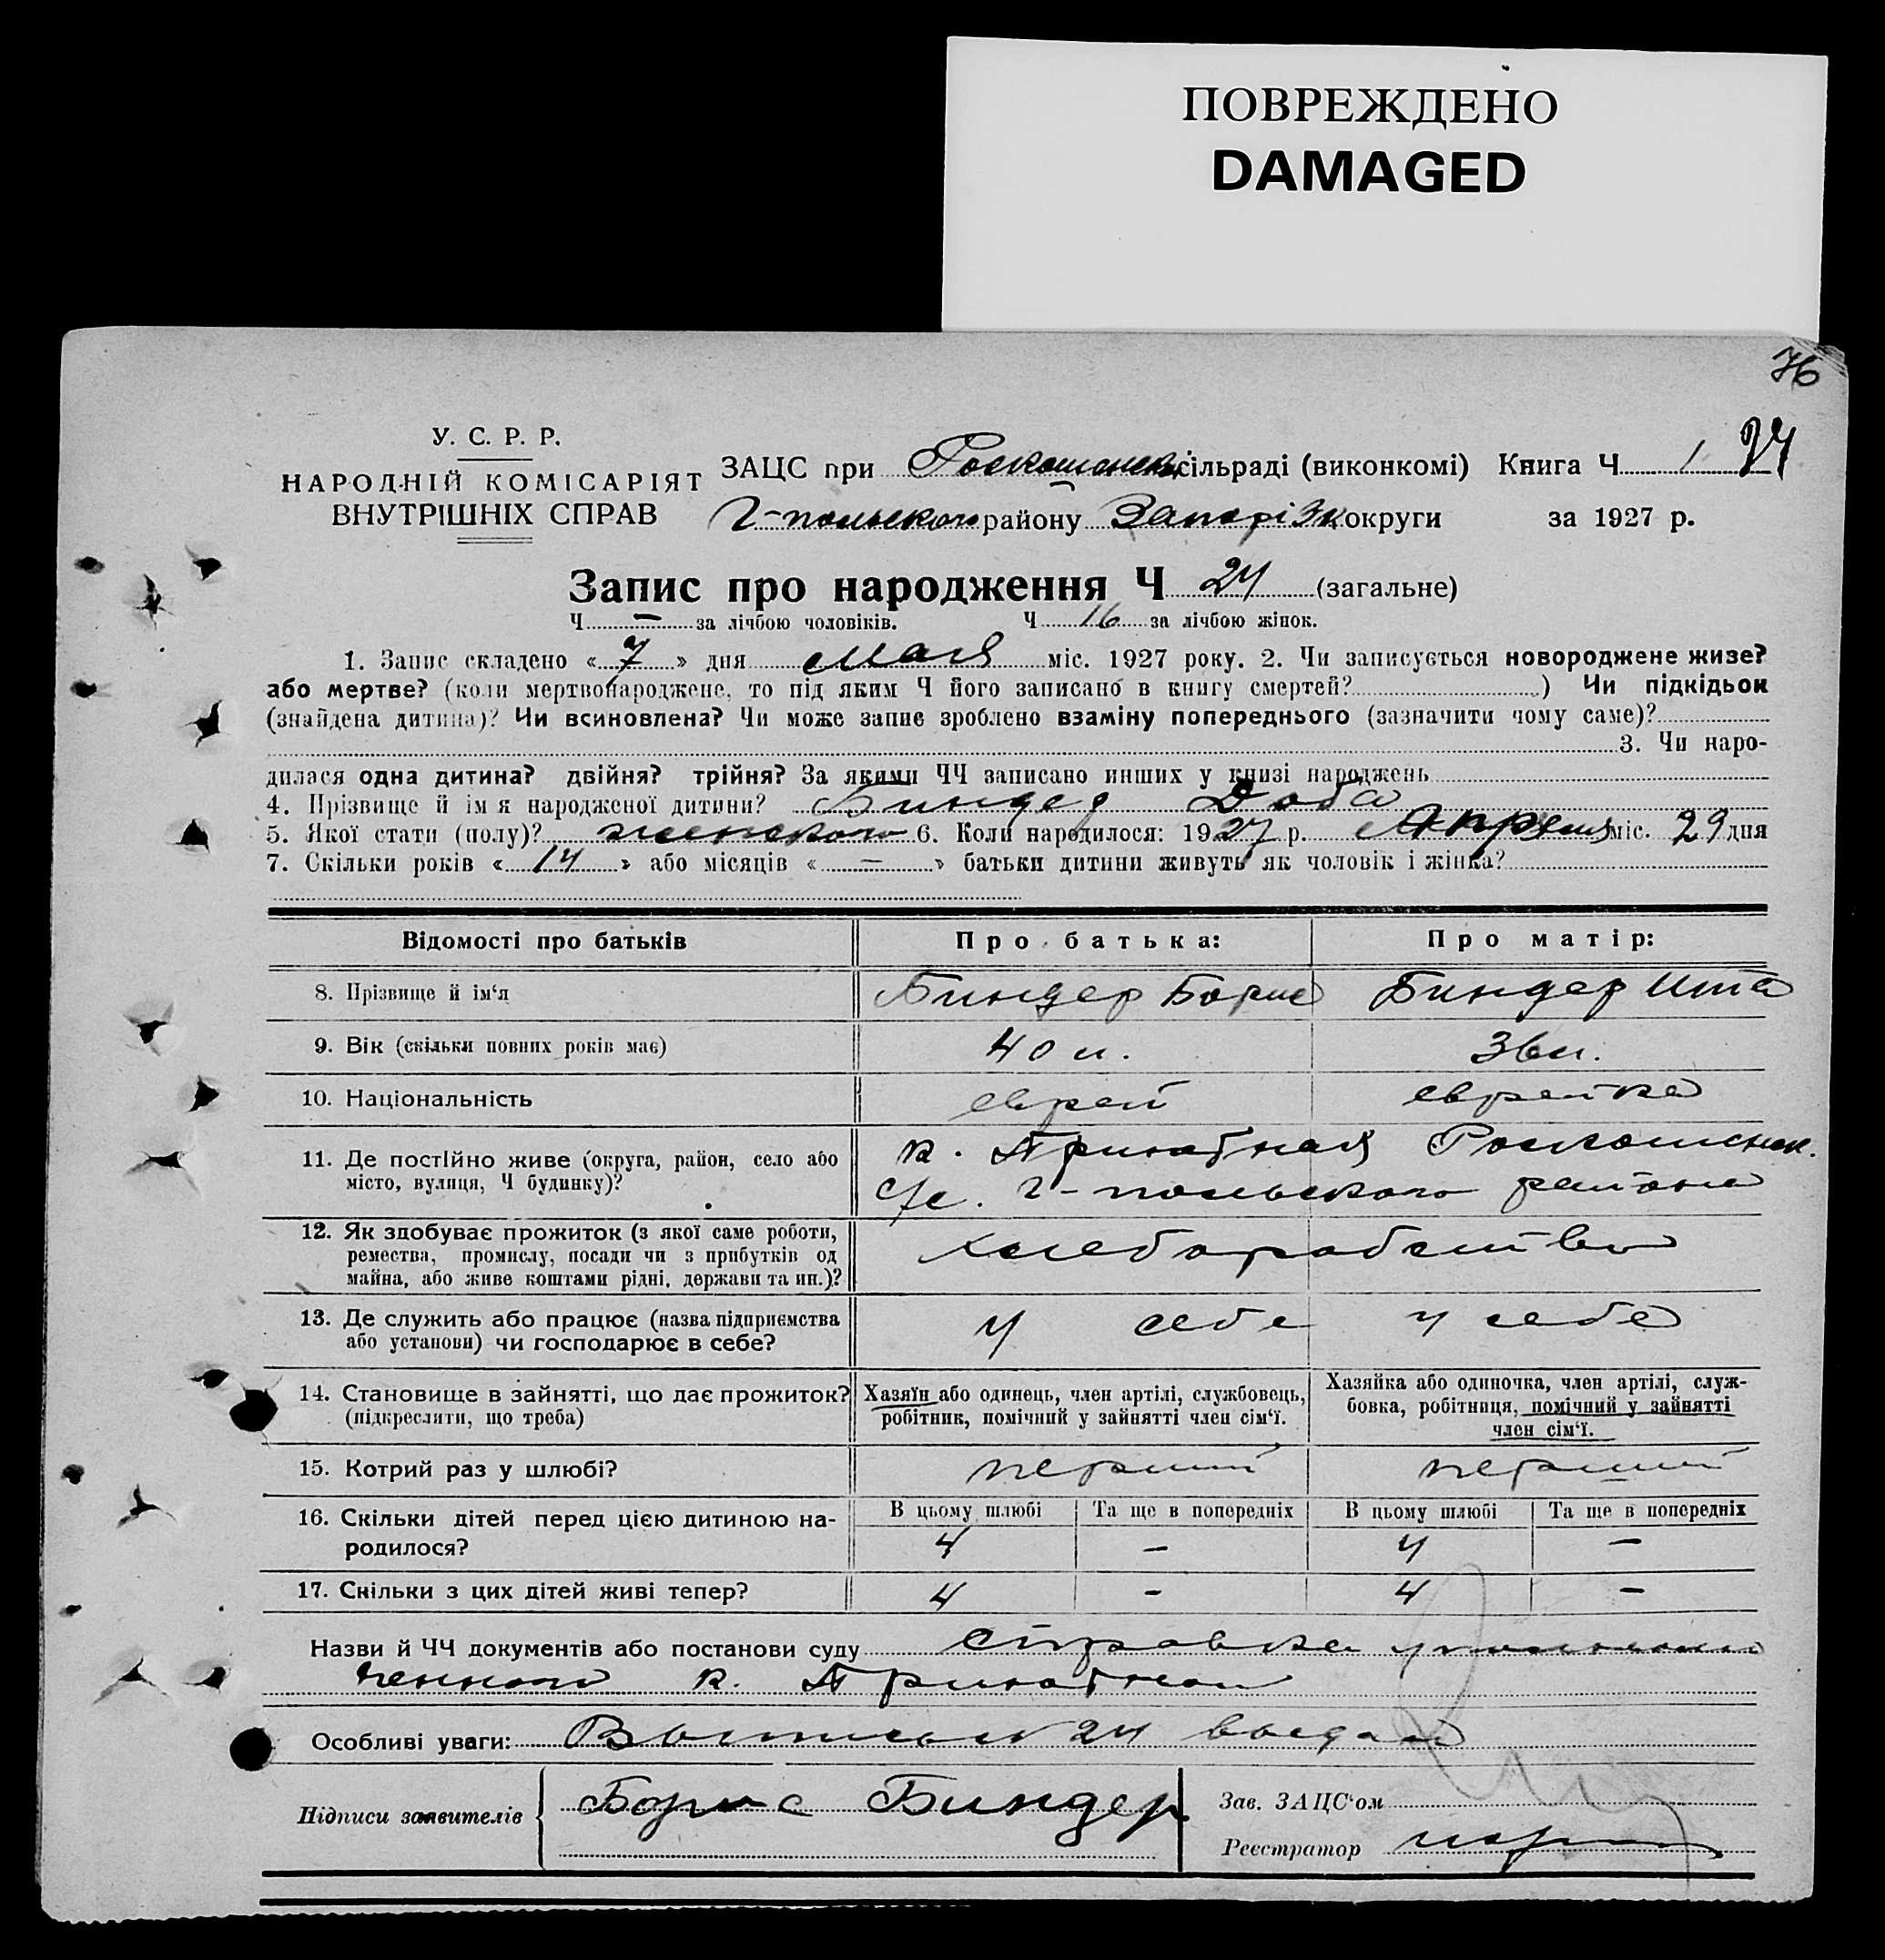 ПОВРЕЖДЕНО
DAMAGED
76
У. С. Р. Р.
НАРОДНІЙ КОМІСАРІЯТ
ВНУТРІШНІХ СПРАВ
ЗАЦС при Роскошанской сільраді (виконкомі) Книга Ч 1
Г-польского району Запоріжк округи за 1927 р.
Запис про народження Ч 24 (загальне)
Ч — за лічбою чоловіків. Ч 16 за лічбою жінок.
1. Запис складено « 7 » дня Мая міс. 1927 року. 2. Чи записується новороджене живе?
або мертве? (коли мертвонароджене, то під яким Ч його записано в книгу смертей? ) Чи підкідьок
(знайдена дитина)? Чи всиновлена? Чи може запис зроблено взаміну попереднього (зазначити чому саме)?
3. Чи наро-
дилася одна дитина? двійня? трійня? За якими ЧЧ записано инших у книзі народжень
4. Прізвище й ім я народженої дитини? Биндер Доба
5. Якої стати (полу)? женского 6. Коли народилося: 1927 р. Апреля міс. 29 дня
7. Скільки років « 14 » або місяців « — » батьки дитини живуть як чоловік і жінка?
Відомості про батьків Про батька: Про матір:
8. Прізвище й ім‘я Биндер Борис Биндер Ита
9. Вік (скільки повних років має) 40 л. 36 л.
10. Національність еврей еврейка
11. Де постійно живе (округа, район, село або
місто, вулиця, Ч будинку)?
к. Приютная Роскошанск.
с/с. Г-польского района
12. Як здобуває прожиток (з якої саме роботи,
ремества, промислу, посади чи з прибутків од
майна, або живе коштами рідні, держави та ин.)?
хлеборобство
13. Де служить або працює (назва підприємства
або установи) чи господарює в себе?
у себе у себе
14. Становище в зайнятті, що дає прожиток?
(підкреслити, що треба)
Хазяїн або одинець, член артілі, службовець,
робітник, помічний у зайнятті член сім‘ї.
Хазяйка або одиночка, член артілі, служ-
бовка, робітниця, помічний у зайнятті
член сім‘ї.
15. Котрий раз у шлюбі? перший перший
16. Скільки дітей перед цією дитиною на-
родилося?
В цьому шлюбі Та ще в попередніх В цьому шлюбі Та ще в попередніх
4 — 4 —
17. Скільки з цих дітей живі тепер? 4 — 4 —
Назви й ЧЧ документів або постанови суду справка уполномо
ченного к. Приютной
Особливі уваги: Выпись 24 выдан
Підписи заявителів Борис Биндер
Зав. ЗАЦС‘ом
Реєстратор